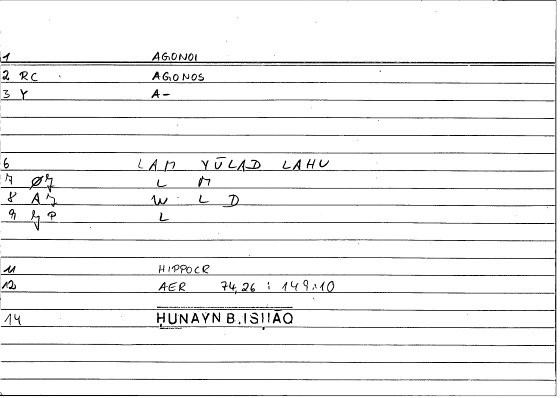 1 AGONOI
2 RC AGONOS
3 Y A-
6 LAM YŪLAD LAHU
7 ØZ L M
8 AZ W L D
9 ZP L
11 HIPPOCR
12 AER 74,26 : 149:10
14 ḤUNAYN B. ISḤĀQ